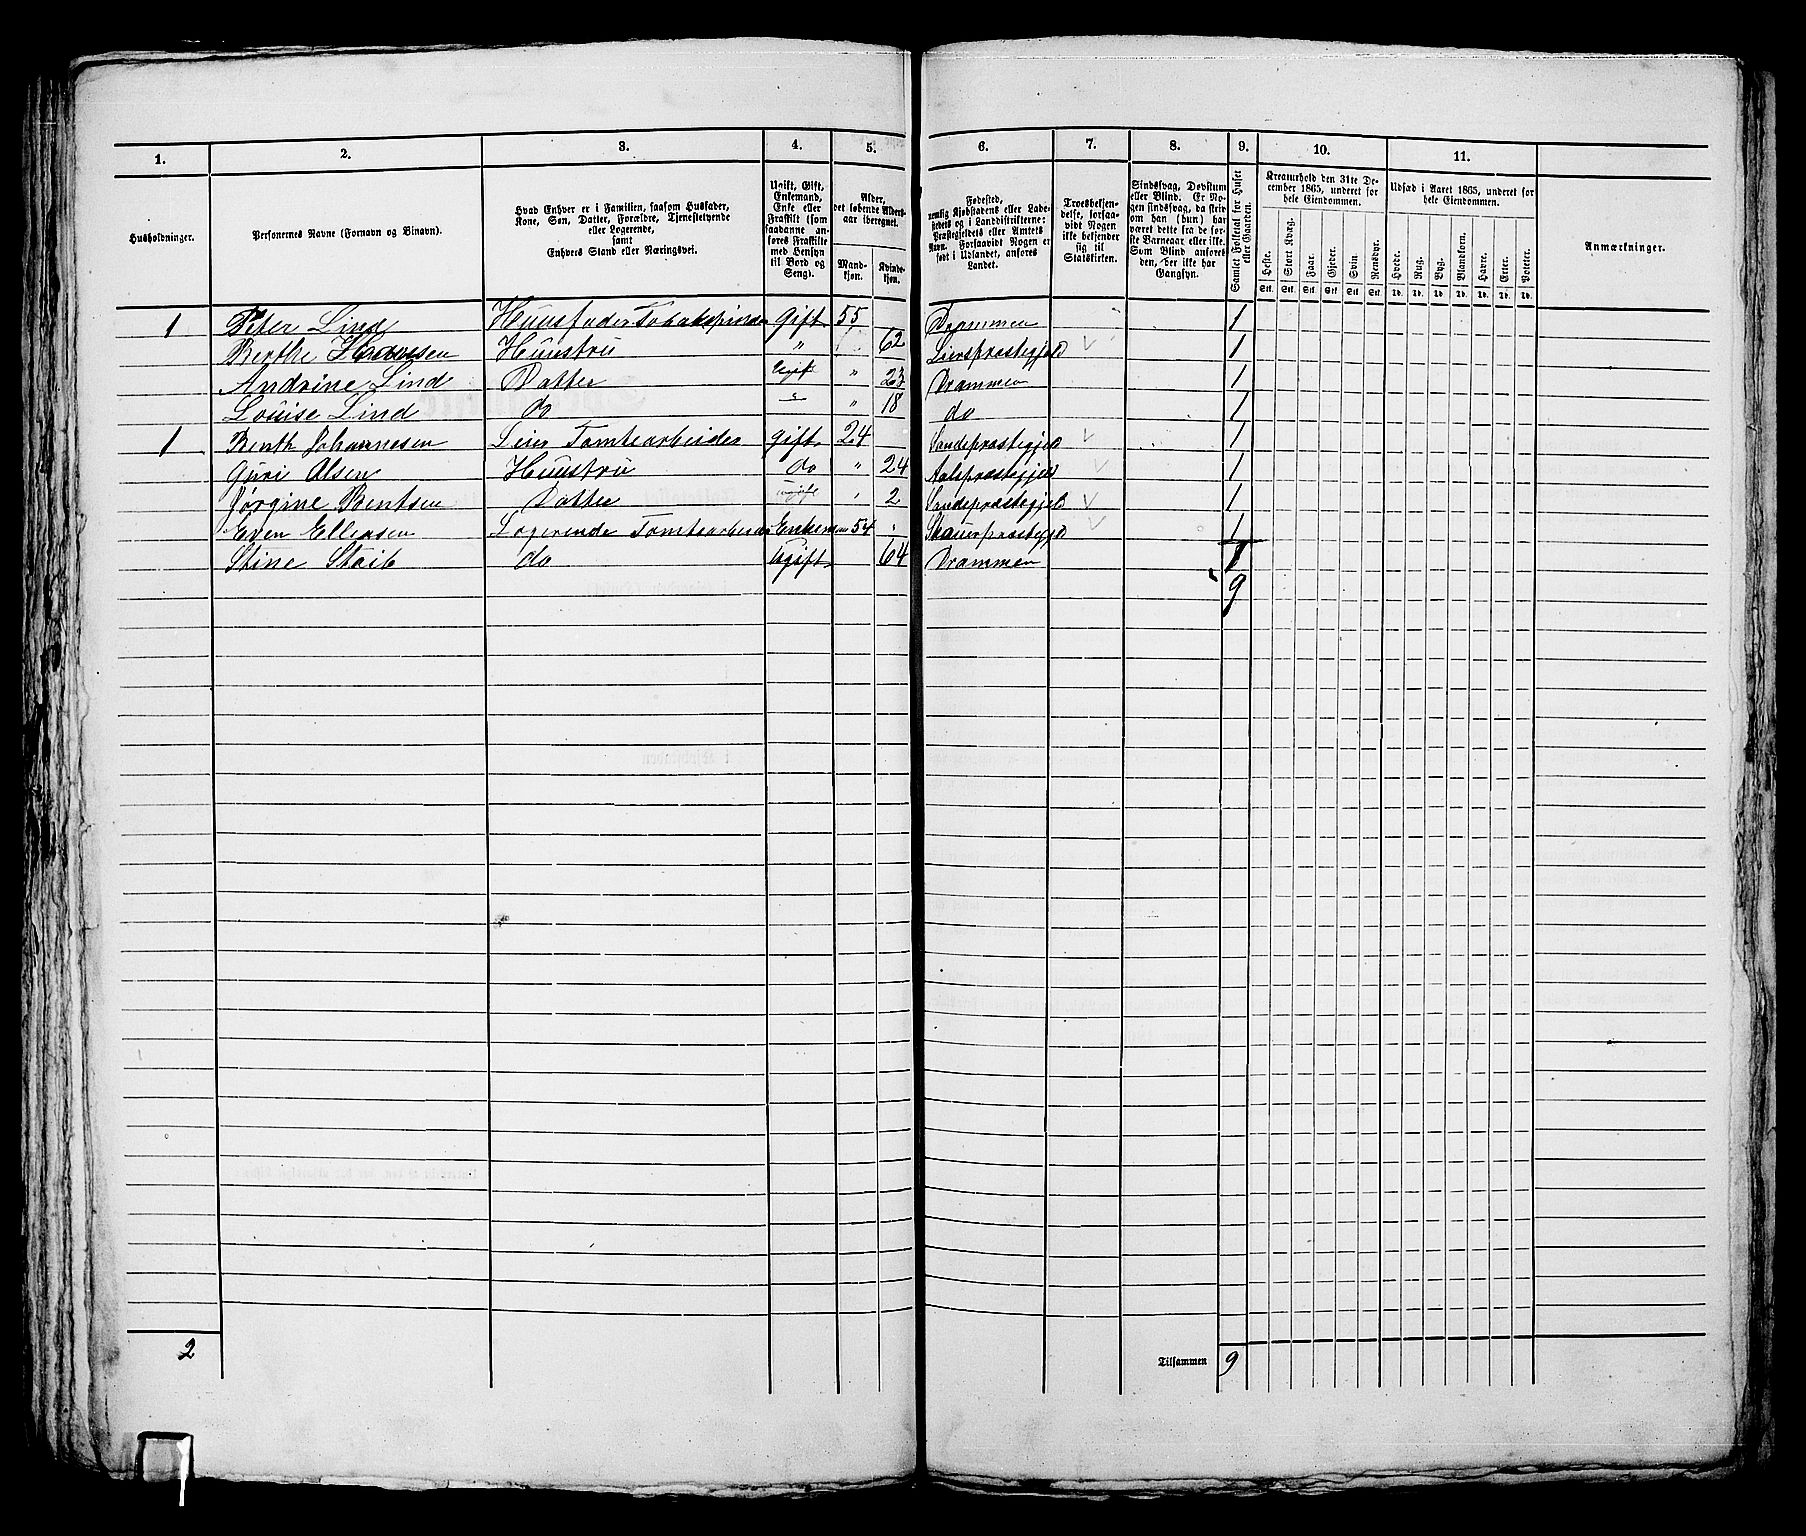 1. 2. 3. 4. 5. 6. 7. 8. 9. 10. 11.
Husholdninger.
Personernes Navne (Fornavn og Binavn).
Hvad Enhver er i Familien, saasom Husfader,
Kone, Søn, Datter, Forældre, Tjenestetyende
eller Logerende,
samt
Enhvers Stand eller Næringsvei.
Ugift, Gift,
Enkemand,
Enke eller
Fraskilt (som
saadanne an-
føres Fraskilte
med Hensyn
til Bord og
Seng).
Alder,
det løbende Alders-
aar iberegnet.
Mand-
kjøn.
Kvinde-
kjøn.
Fødested,
nemlig Kjøbstadens eller Lade-
stedets og i Landdistrikterne:
Præstegjeldets eller Amtets
Navn. Forsaavidt Nogen er
født i Udlandet, anføres
Landet.
Troesbekjen-
delse, forsaa-
vidt Nogen
ikke bekjender
sig til
Statskirken.
Sindssvag, Døvstum
eller Blind. Er No-
gen sindssvag, da skriv
om han (hun) har
været dette fra de før-
ste Barneaar eller ikke.
Som Blind anføres
den, der ikke har
Gangsyn.
Samlet Folketal for Huset
eller Gaarden.
Kreaturhold den 31te De-
cember 1865, underet for
hele Eiendommen.
Heste. Stort Kvæg. Faar. Gjeder. Svin. Rensdyr.
Stk. Stk. Stk. Stk. Stk. Stk.
Udsæd i Aaret 1865, underet for
hele Eiendommen.
Hvede. Rug. Byg. Blandkorn. Havre. Erter. Poteter.
Td. Td. Td. Td. Td. Td. Td.
Anmærkninger.
1 Peter Lind Huusfader Tobakspinder gift 55 Drammen 1
Berthe Hansen Huustru " 62 Lierspræstegjeld 1
Andrine Lind Datter Ugift " 23 Drammen 1
Louise Lind do " " 18 do 1
1 Benth Johannesen Leier Tomtearbeider gift 24 Sandepræstegjeld 1
Guri Olsen Huustru do " 24 Aalspræstegjeld 1
Jørgine Bentsen Datter ugift " 2 Sandepræstegjeld 1
Even Ellensen Logerende Tomtearbeider Enkeman 54 " Skauerpræstegjeld 1
Stine Staib do Ugift 64 Drammen 1
9
2 Tilsammen 9